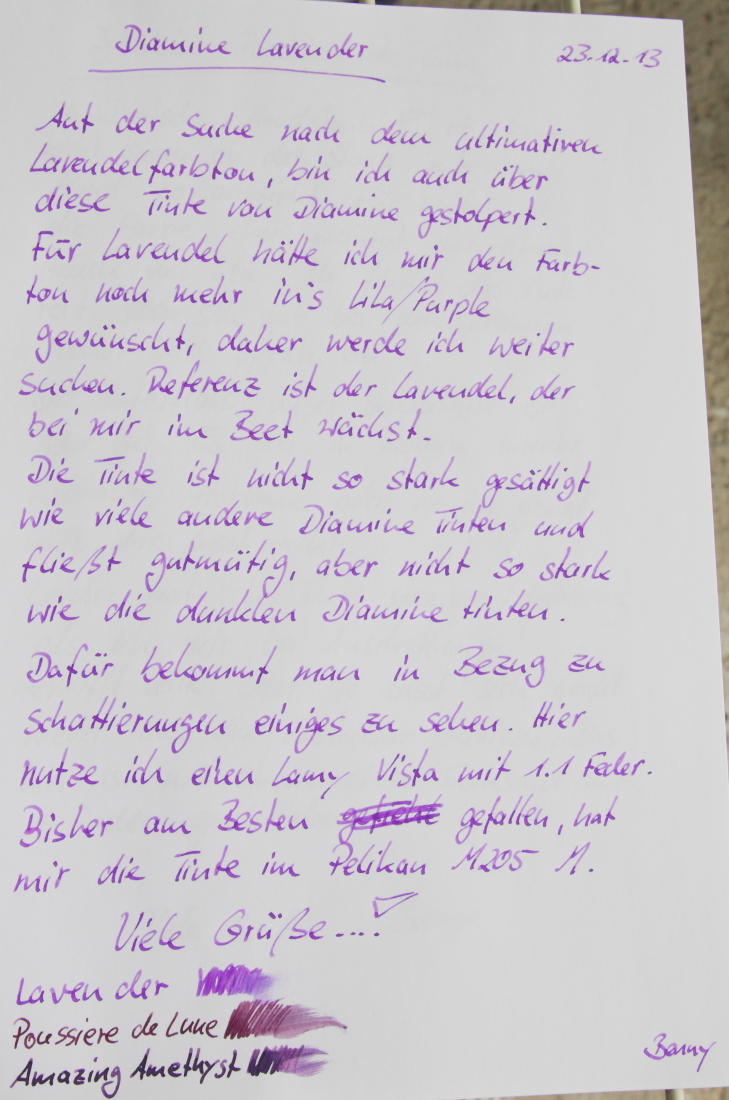 Diamine Lavender
23.12.13
Auf der Suche nach dem ultimativen
Lavendelfarbton, bin ich auch über
diese Tinte von Diamine gestolpert.
Für Lavendel hätte ich mir den Farb-
ton noch mehr in's Lila/Purple
gewünscht, daher werde ich weiter
suchen. Referenz ist der Lavendel, der
bei mir im Beet wächst.
Die Tinte ist nicht so stark gesättigt
wie viele andere Diamine Tinten und
fließt gutmütig, aber nicht so stark
wie die dunklen Diamine tinten.
Dafür bekommt man in Bezug zu
Schattierungen einiges zu sehen. Hier
nutze ich einen Lamy Vista mit 1.1 Feder.
Bisher am Besten gefallen, hat
mir die Tinte im Pelikan M205 M.
Viele Grüße....
Lavender
Poussiere de Lune
Amazing Amethyst
Barny